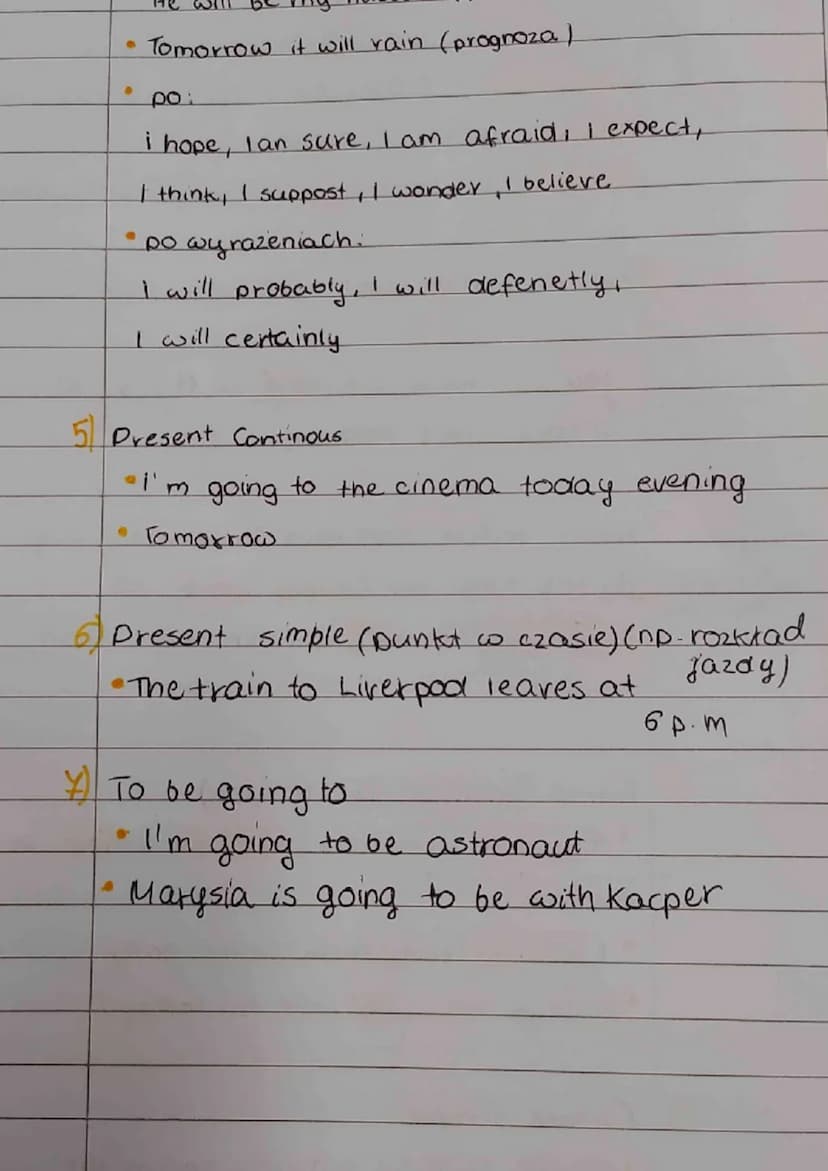 He will be my
• Tomorrow it will rain (prognoza)
• po:
i hope, I an sure, I am afraid, I expect,
I think, I suppost, I wonder, I believe
• po wyrażeniach:
I will probably, I will defenetly,
I will certainly
5) Present Continous
• I'm going to the cinema today evening
• Tomorrow
6) Present simple (punkt w czasie) (np. rozkład
jazdy)
• The train to Liverpool leaves at
6 p.m
7) To be going to
• I'm going to be astronaut
• Marysia is going to be with Kacper